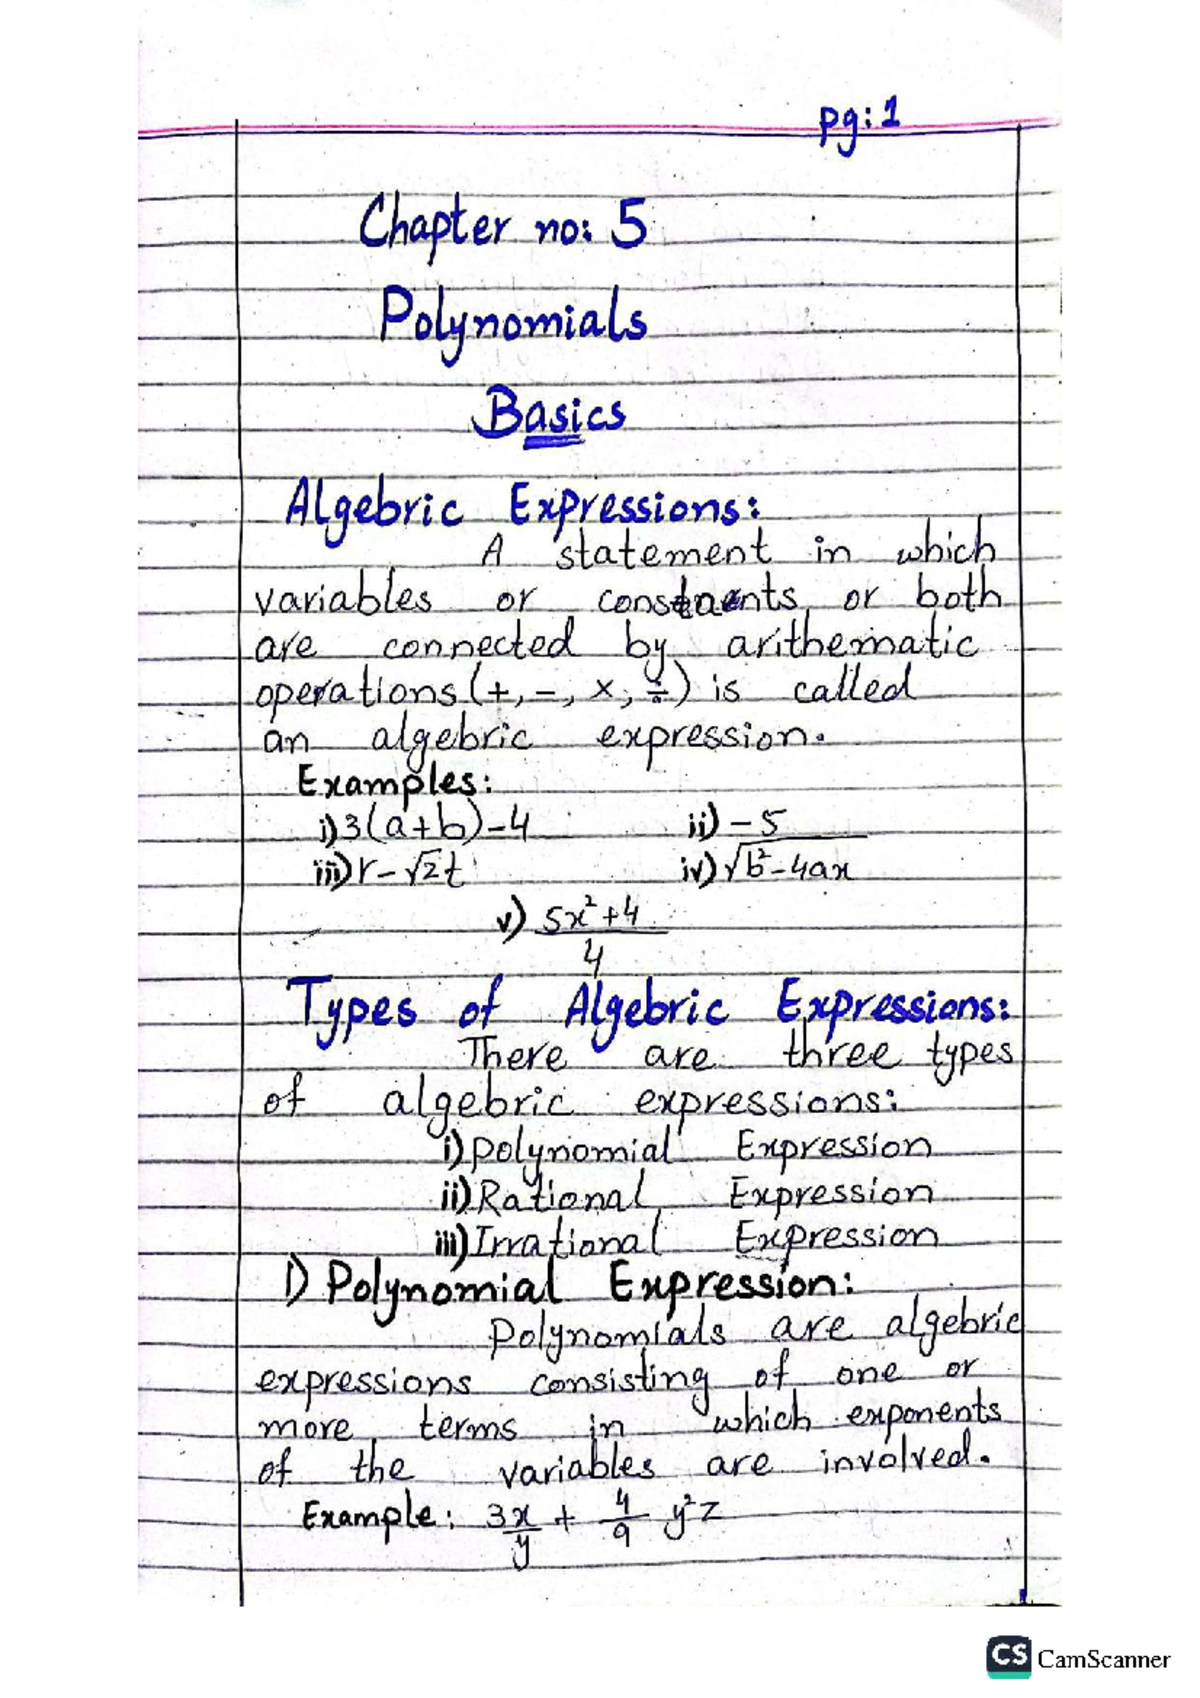 pg:1
Chapter no: 5
Polynomials
Basics
Algebric Expressions:
A statement in which
variables or constants or both
are connected by arithematic
operations (+, -, ×, ÷) is called
an algebric expression.
Examples:
i) 3(a+b)-4 ii) -5
iii) r-√2t iv) √b²-4ax
v) 5x²+4
4
Types of Algebric Expressions:
There are three types
of algebric expressions:
i) Polynomial Expression
ii) Rational Expression
iii) Irrational Expression
1) Polynomial Expression:
Polynomials are algebric
expressions consisting of one or
more terms in which exponents
of the variables are involved.
Example: 3x/y + 4/9 y²z
CS CamScanner